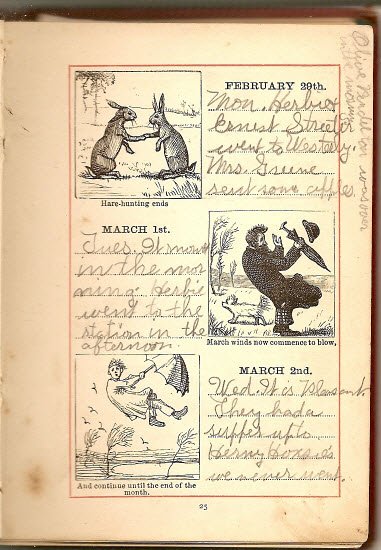 FEBRUARY 29th.
Mon. Herbie &
Ernest Streeter
went to Westerly.
Mrs. Greene
sent some apples.
Hare-hunting ends
MARCH 1st.
Tues. It snows
in the mor
ning. Herbie
went to the
station in the
afternoon.
March winds now commence to blow,
MARCH 2nd.
Wed. It is pleasant.
They had a
supper up to
Henry Hoxe as
we never went.
And continue until the end of the
month.
25